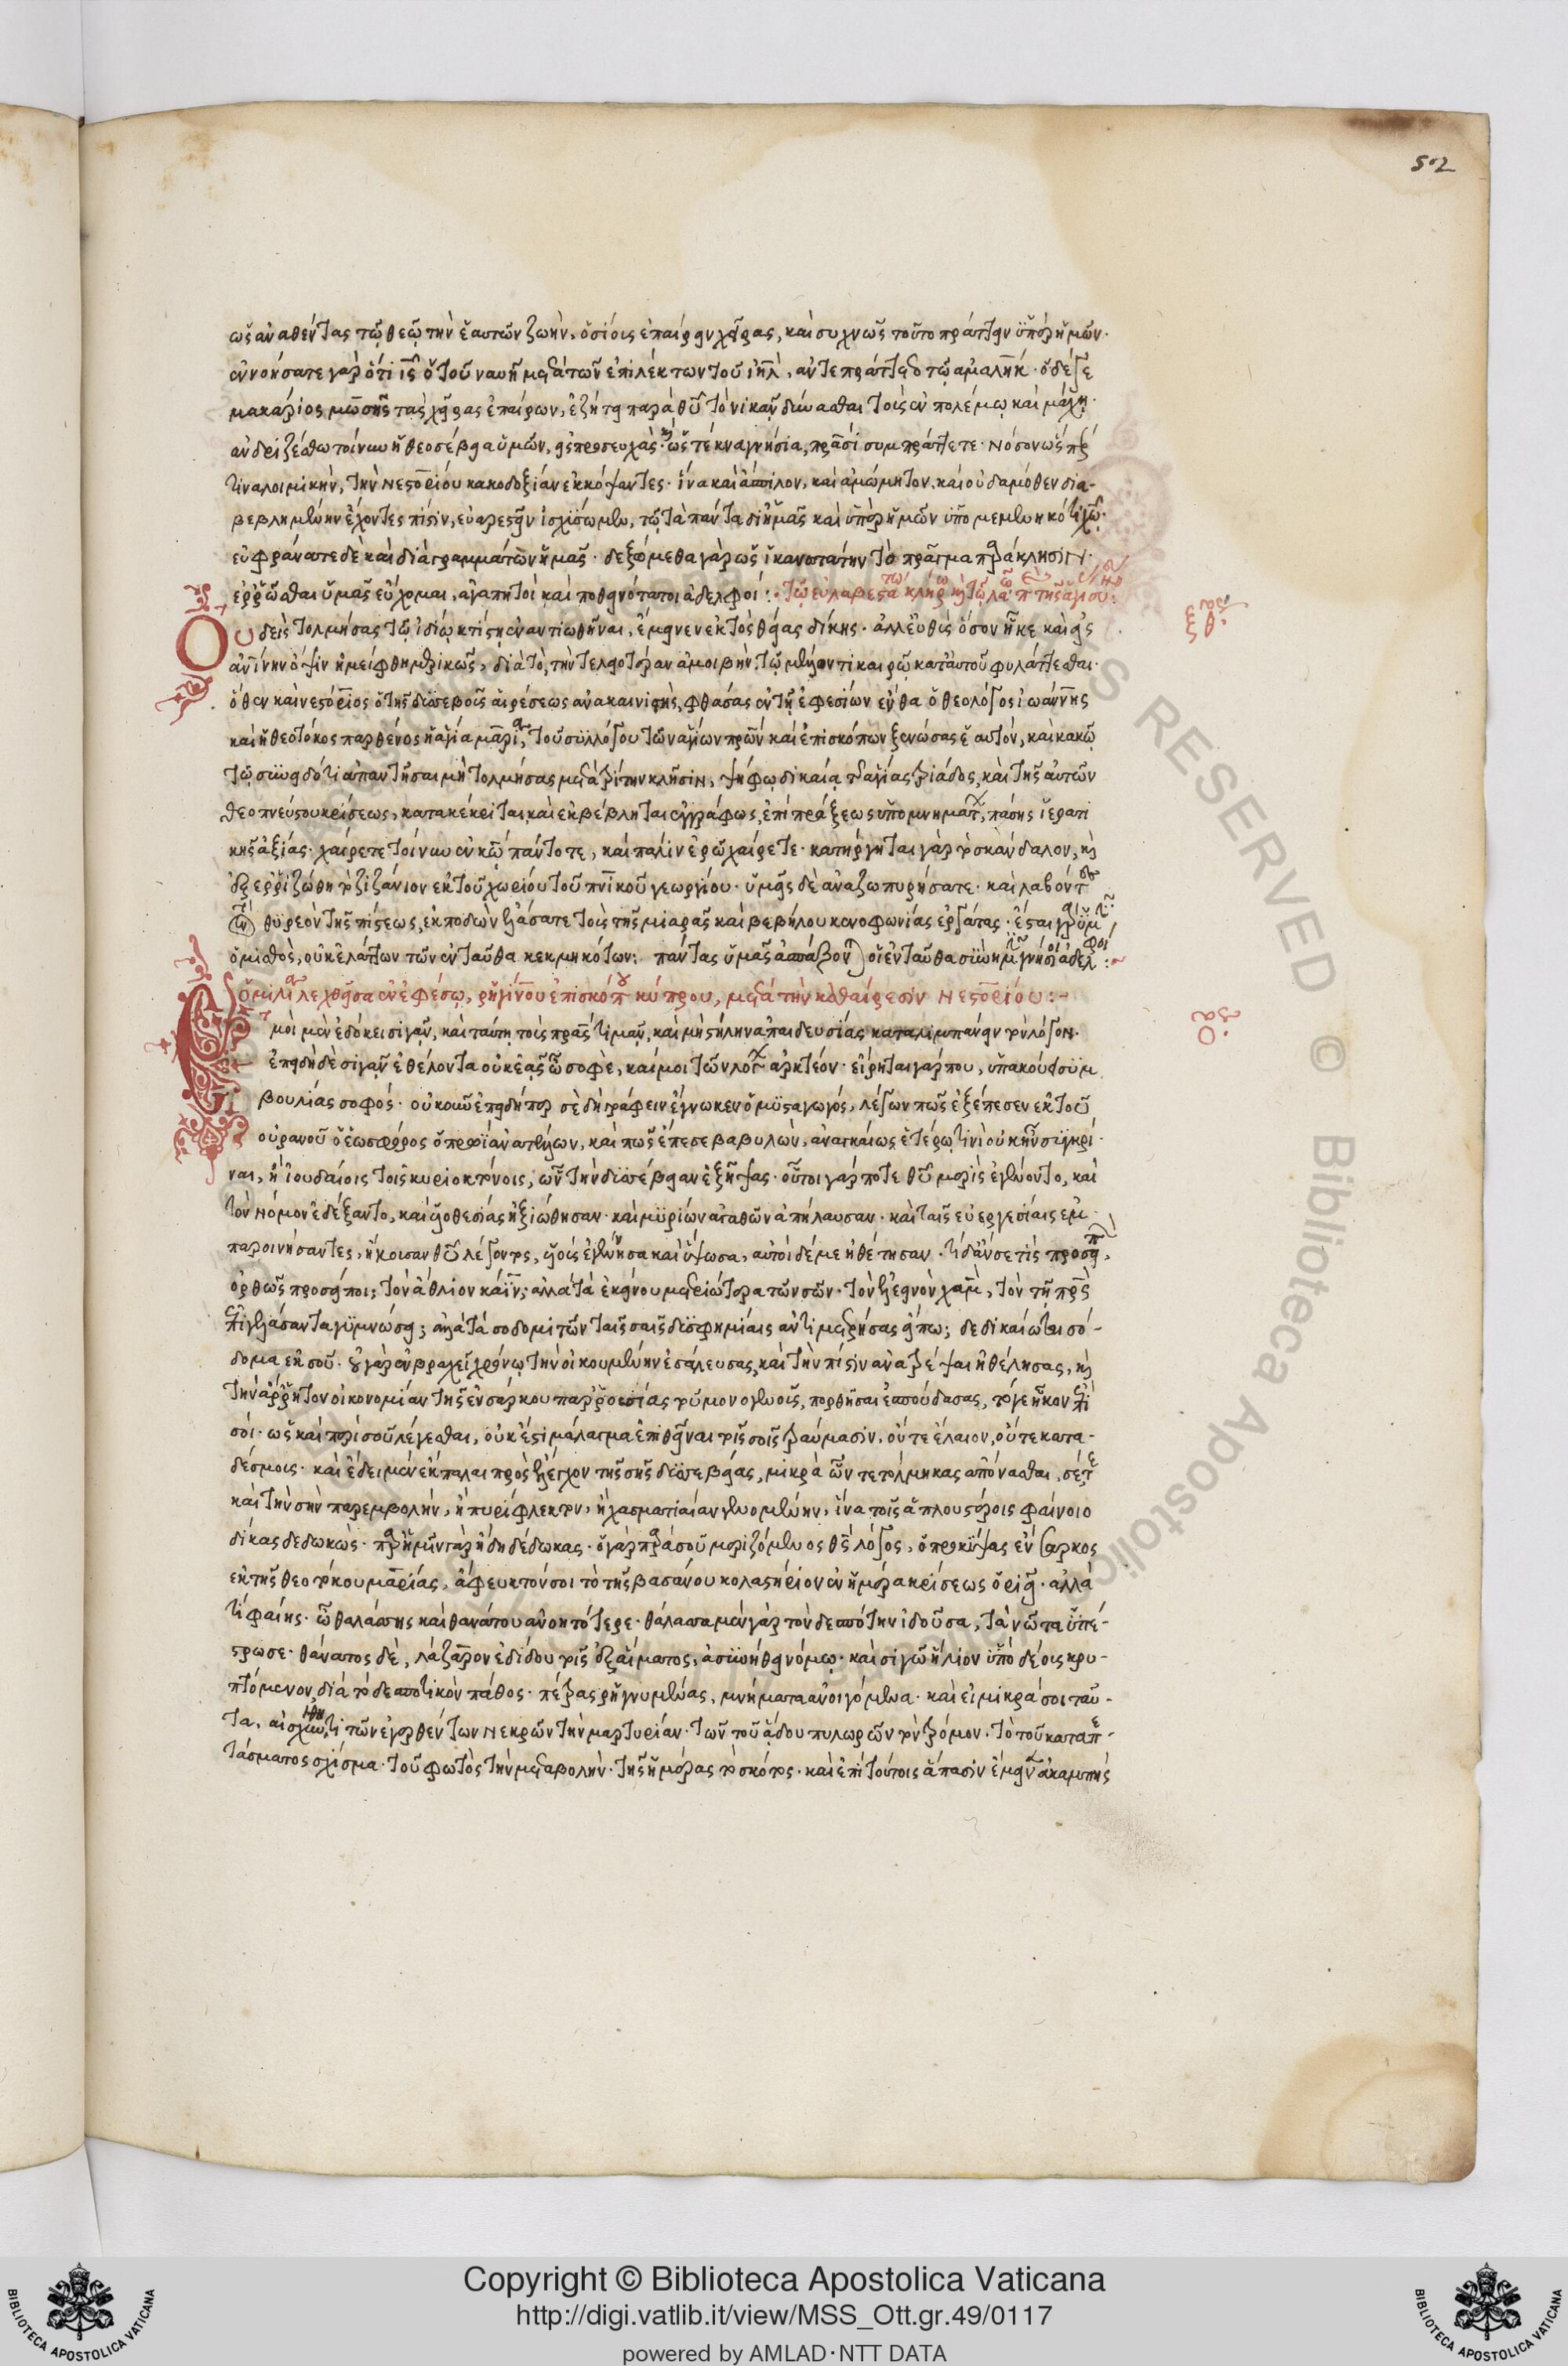 502
ὡς ἀναθέντας τῷ θεῷ τὴν ἑαυτῶν ζωὴν, ὁσίοις ἐπαίρειν χεῖρας, καὶ συχνῶς τοῦτο πράττειν ὑπὲρ ἡμῶν.
ἐννοήσατε γὰρ ὅτι ις ὁ τοῦ ναυῆ μετὰ τῶν ἐπιλέκτων τοῦ ιηλ, ἀντεπράττετο τῷ ἀμαλὴκ. ὁ δέ γε
μακάριος μωσῆς τὰς χεῖρας ἐπαίρων, ἐζήτει παρὰ θυ τὸ νικᾶν δύνασθαι τοῖς ἐν πολέμῳ καὶ μάχῃ.
ἀνδριζέσθω τοίνυν ἡ θεοσέβεια ὑμῶν, εἰς προσευχὰς. ὡς τέκνα γνήσια, πρασι συμπράττετε. νόσον ὥσπερ
τινα λοιμικὴν, τὴν νεστορίου κακοδοξίαν ἐκκόψαντες. ἵνα καὶ ἄσπιλον, καὶ ἀμώμητον, καὶ οὐδαμόθεν δια-
βεβλημένην ἔχοντες πίστιν, εὐαρεστεῖν ἰσχύσωμεν, τῷ τὰ πάντα δι' ἡμᾶς καὶ ὑπὲρ ἡμῶν ὑπομεμενηκότι χω.
εὐφράνατε δὲ καὶ διὰ γραμμάτων ἡμᾶς. δεξόμεθα γὰρ ὡς ἱκανωτάτην τὸ πρᾶγμα παράκλησιν.
ἐρρῶσθαι ὑμᾶς εὔχομαι, ἀγαπητοὶ καὶ ποθεινότατοι ἀδελφοί: τῷ εὐλαβεστάτῳ κλήρῳ καὶ τῷ λαῷ
Οὐδεὶς τολμήσας τῷ ἰδίῳ κτίστῃ ἐναντιωθῆναι, ἔμεινεν ἐκτὸς θείας δίκης. ἀλλ' εὐθὺς ὅσον ἧκε καὶ εἰς
ἀντίνην ὄψιν ἠμείφθη μερικῶς, διὰ τὸ, τὴν τελειοτέραν ἀμοιβὴν, τῷ μέλλοντι καιρῷ κατ' αὐτοῦ φυλάττεσθαι.
ὅθεν καὶ νεστόριος ὁ τῆς δυσσεβοῦς αἱρέσεως ἀνακαινιστὴς, φθάσας ἐν τῇ ἐφεσίων ἔνθα ὁ θεολόγος ἰωάννης
καὶ ἡ θεοτόκος παρθένος ἡ ἁγία μαρία, τοῦ συλλόγου τῶν ἁγίων πρων καὶ ἐπισκόπων ξενώσας ἑαυτὸν, καὶ κακῷ
τῷ συνειδότι ἀπαντῆσαι μὴ τολμήσας μετὰ τρίτην κλῆσιν, ψήφῳ δικαίᾳ τῆς ἁγίας τριάδος, καὶ τῆς αὐτῶν
θεοπνεύστου κρίσεως, κατακέκριται, καὶ ἐκβέβληται ἐγγράφως, ἐπὶ πράξεως ὑπομνημάτων, πάσης ἱερατι
κῆς ἀξίας. χαίρετε τοίνυν ἐν κω πάντοτε, καὶ πάλιν ἐρῶ χαίρετε. κατήργηται γὰρ τὸ σκάνδαλον, καὶ
ἐξερριζώθη τὸ ζιζάνιον ἐκ τοῦ χωρίου τοῦ πνικοῦ γεωργίου. ὑμεῖς δὲ ἀναζωπυρήσατε. καὶ λαβόντες
τὸν θυρεὸν τῆς πίστεως, ἐκποδὼν ἐλάσατε τοὺς τῆς μιαρᾶς καὶ βεβήλου κενοφωνίας ἐργάτας. ἔσται γὰρ ὑμῖν
ὁ μισθὸς, οὐκ ἐλάττων τῶν ἐνταῦθα κεκμηκότων: πάντας ὑμᾶς ἀσπάζονται οἱ ἐνταῦθα σὺν ἡμῖν γνήσιοι ἀδελφοί:
ὁμιλία λεχθεῖσα ἐν ἐφέσῳ, ρηγίνου ἐπισκόπου κύπρου, μετὰ τὴν καθαίρεσιν νεστορίου:
Ἐμοὶ μὲν ἐδόκει σιγᾶν, καὶ ταύτῃ τοὺς πρας τιμᾶν, καὶ μὴ στήλην ἀπαιδευσίας καταλιμπάνειν τὸν λόγον.
ἐπειδὴ δὲ σιγᾶν ἐθέλοντα οὐκ ἐᾷς ὦ σοφὲ, καί μοι τῶν λόγων ἀρκτέον. εἴρηται γάρ που, ὑπακούει συμ
βουλίας σοφός. οὐκοῦν ἐπειδήπερ σὲ δὴ γράφειν ἔγνωκεν ὁ μυσταγωγὸς, λέγων πῶς ἐξέπεσεν ἐκ τοῦ
οὐρανοῦ ὁ ἑωσφόρος ὁ πρωῒ ἀνατέλλων, καὶ πῶς ἔπεσε βαβυλὼν, ἀναγκαίως ἑτέρῳ τινὶ οὐκ ἦν συγκρί
ναι, ἢ ἰουδαίοις τοῖς κυριοκτόνοις, ὧν τὴν δυσσέβειαν ἐξῆψας. οὗτοι γάρ ποτε θυ μερὶς ἐγένοντο, καὶ
τὸν νόμον ἐδέξαντο, καὶ υἱοθεσίας ἠξιώθησαν. καὶ μυρίων ἀγαθῶν ἀπήλαυσαν. καὶ ταῖς εὐεργεσίαις ἐμ
παροινήσαντες, ἤκουσαν θυ λέγοντος, υἱοὺς ἐγέννησα καὶ ὕψωσα, αὐτοὶ δέ με ἠθέτησαν. τί δ' ἄν σε τίς προσείποι,
ὀρθῶς προσείποι; τὸν ἄθλιον κάϊν; ἀλλὰ τὰ ἐκείνου μετριώτερα τῶν σῶν. τὸν ἐλεεινὸν χὰμ, τὸν τῇ πρς
ἐπιγελάσαντα γυμνώσει; ἀλλὰ τὰ σοδομιτῶν ταῖς σαῖς δυσφημίαις ἀντιμετρήσας εἴπω; δεδικαίωται σό-
δομα ἐκ σοῦ. οὐ γὰρ ἐν βραχεῖ χρόνῳ τὴν οἰκουμένην ἐσάλευσας, καὶ τὴν πίστιν ἀνατρέψαι ἠθέλησας, καὶ
τὴν ἄρρητον οἰκονομίαν τῆς ἐνσάρκου παρουσίας τοῦ μονογενοῦς, πορθῆσαι ἐσπούδασας, τό γε ἧκον ἐπὶ
σοί. ὡς καὶ περὶ σοῦ λέγεσθαι, οὐκ ἔστι μάλαγμα ἐπιθεῖναι τοῖς σοῖς τραύμασιν, οὔτε ἔλαιον, οὔτε κατα-
δέσμους. καὶ ἔδει μὲν ἔκπαλαι πρὸς ἔλεγχον τῆς σῆς δυσσεβείας, μικρὰ ὧν τετόλμηκας ἀπόνασθαι, σέ τε
καὶ τὴν σὴν παρεμβολὴν, ἢ πυρίφλεκτον, ἢ χασματιαίαν γενομένην, ἵνα τοῖς ἁπλουστέροις φαίνοιο
δίκας δεδωκὼς. παρ' ἡμῖν γὰρ ἤδη δέδωκας. ὁ γὰρ παρὰ σοῦ μεριζόμενος θς λόγος, ὁ προκύψας ἐν σαρκος
ἐκ τῆς θεοτόκου μαρίας, ἄφευκτόν σοι τὸ τῆς βασάνου κολαστήριον ἐν ἡμέρᾳ κρίσεως ὁριεῖ. ἀλλὰ
τί φαίης. ὦ θαλάσσης καὶ θανάτου ἀνοητότερε. θάλασσα μὲν γὰρ τὸν δεσπότην ἰδοῦσα, τὰ νῶτα ὑπέ-
στρωσε. θάνατος δὲ, λάζαρον ἐδίδου τοῖς ἐξ αἵματος, ἀσυνήθει νόμῳ. καὶ σιγῶ ἥλιον ὑπὸ δέους κρυ-
πτόμενον, διὰ τὸ δεσποτικὸν πάθος. πέτρας ῥηγνυμένας, μνήματα ἀνοιγόμενα. καὶ εἰ μικρά σοι ταῦ-
τα, αἰσχύνθητι τῶν ἐγερθέντων νεκρῶν τὴν μαρτυρίαν. τῶν τοῦ ᾅδου πυλωρῶν τὸν τρόμον. τὸ τοῦ καταπε-
τάσματος σχίσμα. τοῦ φωτὸς τὴν μεταβολὴν. τῆς ἡμέρας τὸ σκότος. καὶ ἐπὶ τούτοις ἅπασιν ἔμεινας ἀκαμπὴς
BIBLIOTECA APOSTOLICA VATICANA
Copyright © Biblioteca Apostolica Vaticana
http://digi.vatlib.it/view/MSS_Ott.gr.49/0117
powered by AMLAD·NTT DATA
BIBLIOTECA APOSTOLICA VATICANA